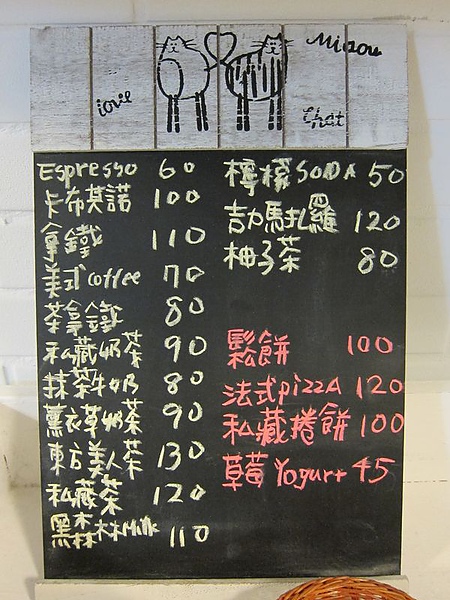 Miaou
love
Chat
Espresso 60
卡布其諾 100
拿鐵 110
美式coffee 70
茶拿鐵 80
私藏奶茶 90
抹茶牛奶 80
薰衣草奶茶 90
東方美人茶 130
私藏茶 120
黑森林Milk 110
檸檬SODA 50
吉力馬扎羅 120
柚子茶 80
鬆餅 100
法式pizzA 120
私藏捲餅 100
草莓Yogurt 45